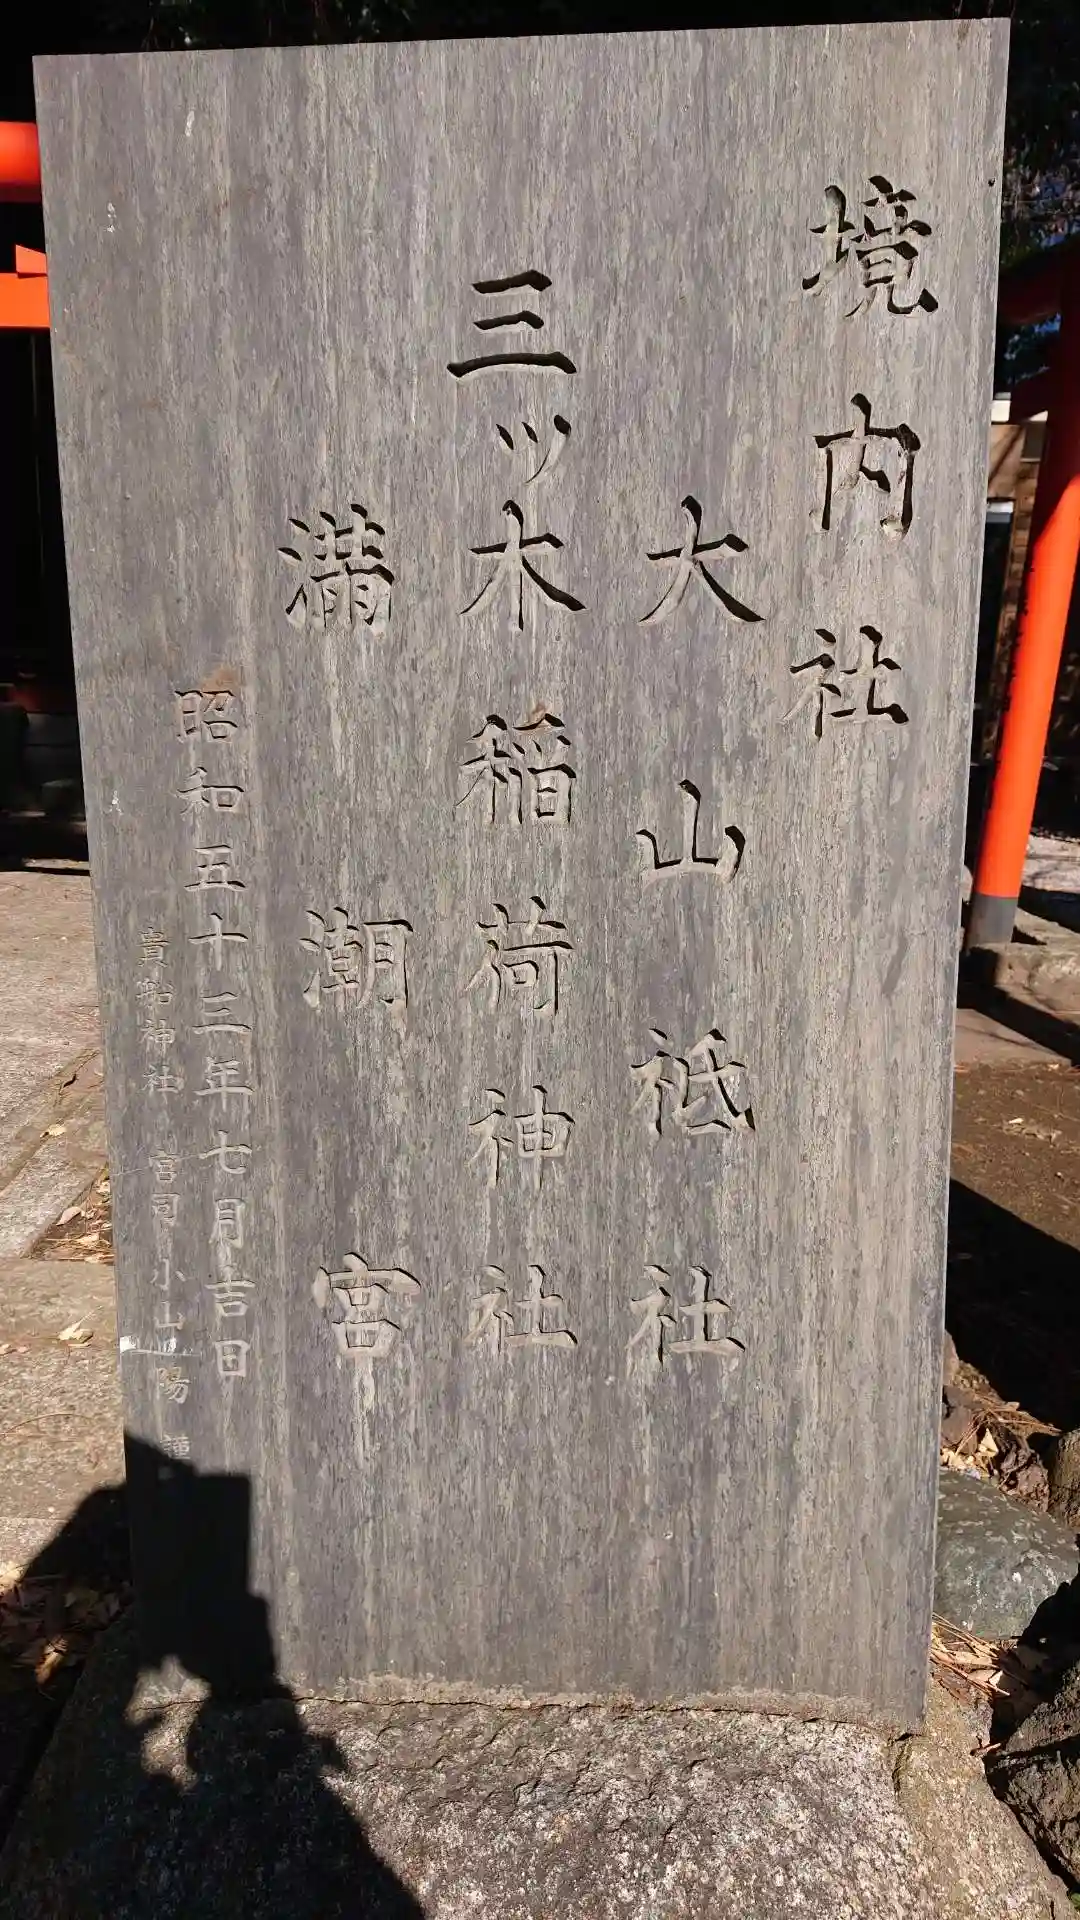 境内社
大山祗社
三ッ木稲荷神社
満潮宮
昭和五十三年七月吉日
貴船神社 宮司 小山陽